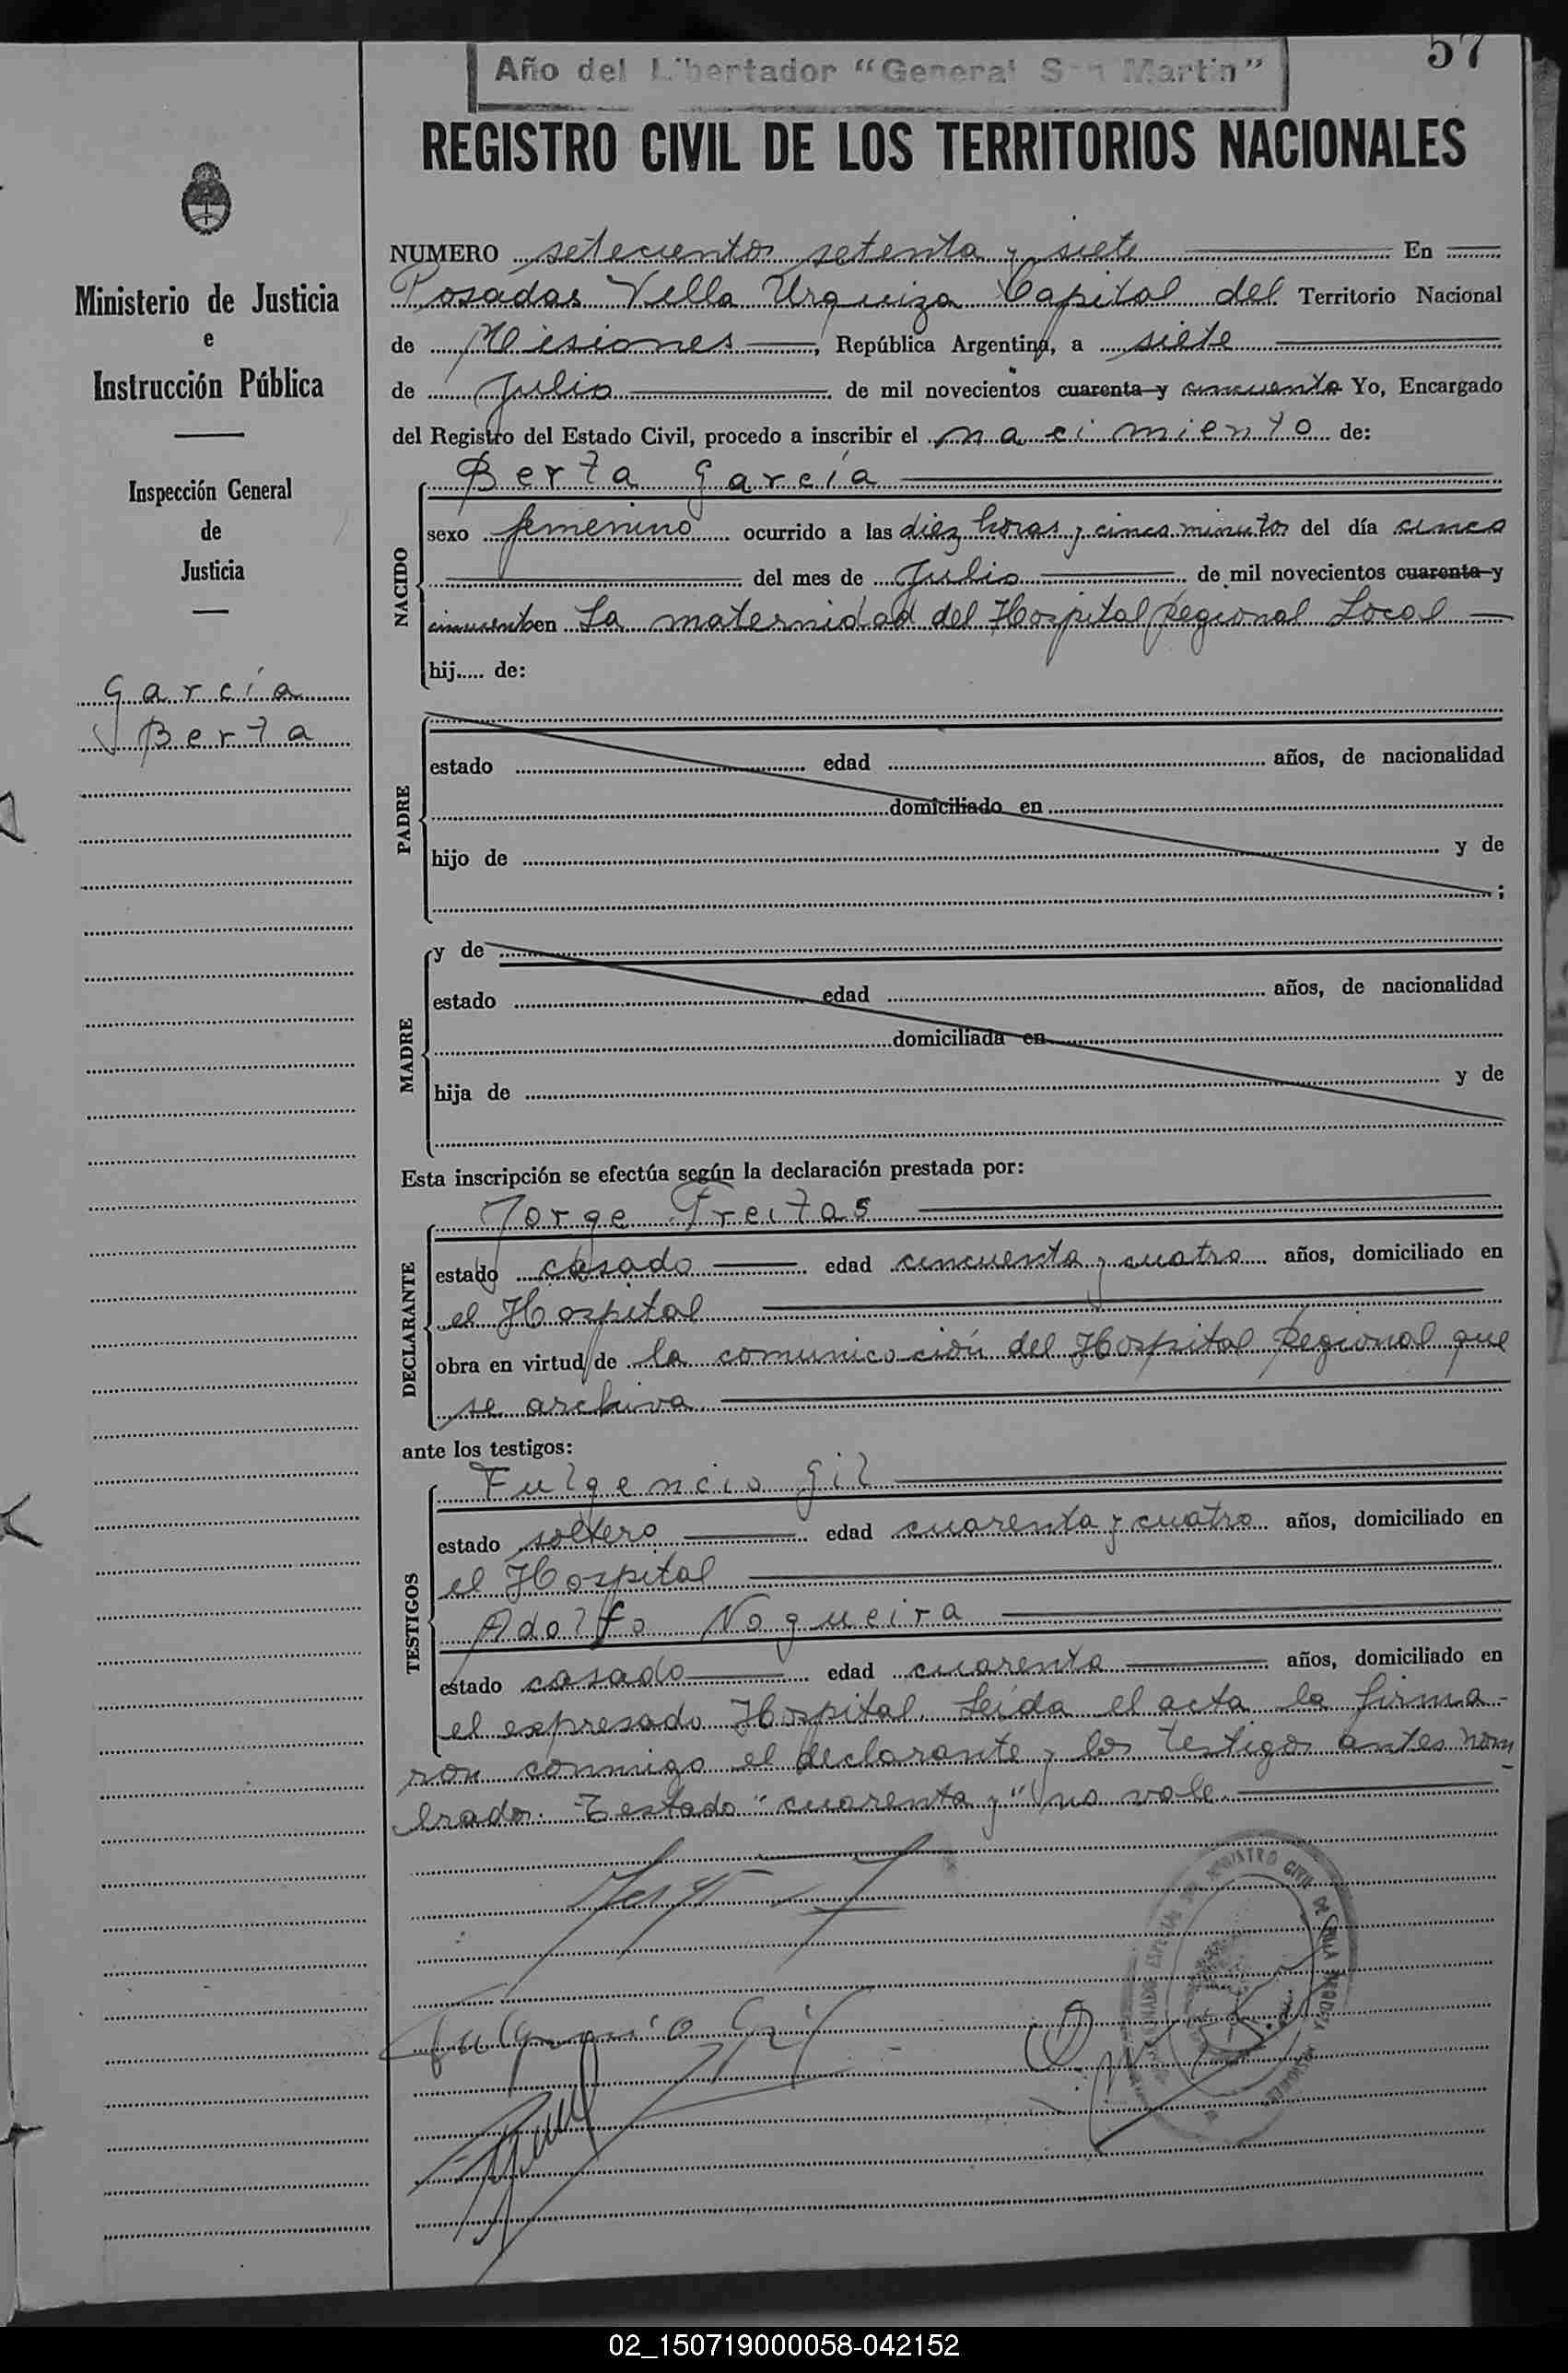 57
Año del Libertador “General San Martin”
REGISTRO CIVIL DE LOS TERRITORIOS NACIONALES
Ministerio de Justicia
e
Instrucción Pública
Inspección General
de
Justicia
García
Berta
NUMERO setecientos setenta y siete En
Posadas Villa Urquiza Capital del Territorio Nacional
de Misiones, República Argentina, a siete
de Julio de mil novecientos cuarenta y cincuenta Yo, Encargado
del Registro del Estado Civil, procedo a inscribir el nacimiento de:
NACIDO
Berta García
sexo femenino ocurrido a las diez horas y cinco minutos del día cinco
del mes de Julio de mil novecientos cuarenta y
cincuenta en La maternidad del Hospital Regional Local
hij..... de:
PADRE
estado edad años, de nacionalidad
domiciliado en
hijo de y de
;
MADRE
y de
estado edad años, de nacionalidad
domiciliada en
hija de y de
Esta inscripción se efectúa según la declaración prestada por:
DECLARANTE
Jorge Freitas
estado casado edad cincuenta y cuatro años, domiciliado en
el Hospital
obra en virtud de la comunicación del Hospital Regional que
se archiva
ante los testigos:
TESTIGOS
Fulgencio Gil
estado soltero edad cuarenta y cuatro años, domiciliado en
el Hospital
Adolfo Nogueira
estado casado edad cuarenta años, domiciliado en
el expresado Hospital. Leída el acta la firma-
ron conmigo el declarante y los testigos antes nom-
brados. Testado "cuarenta y" no vale.
Fulgencio Gil
REGISTRO CIVIL DE VILLA URQUIZA
MISIONES
02_150719000058-042152